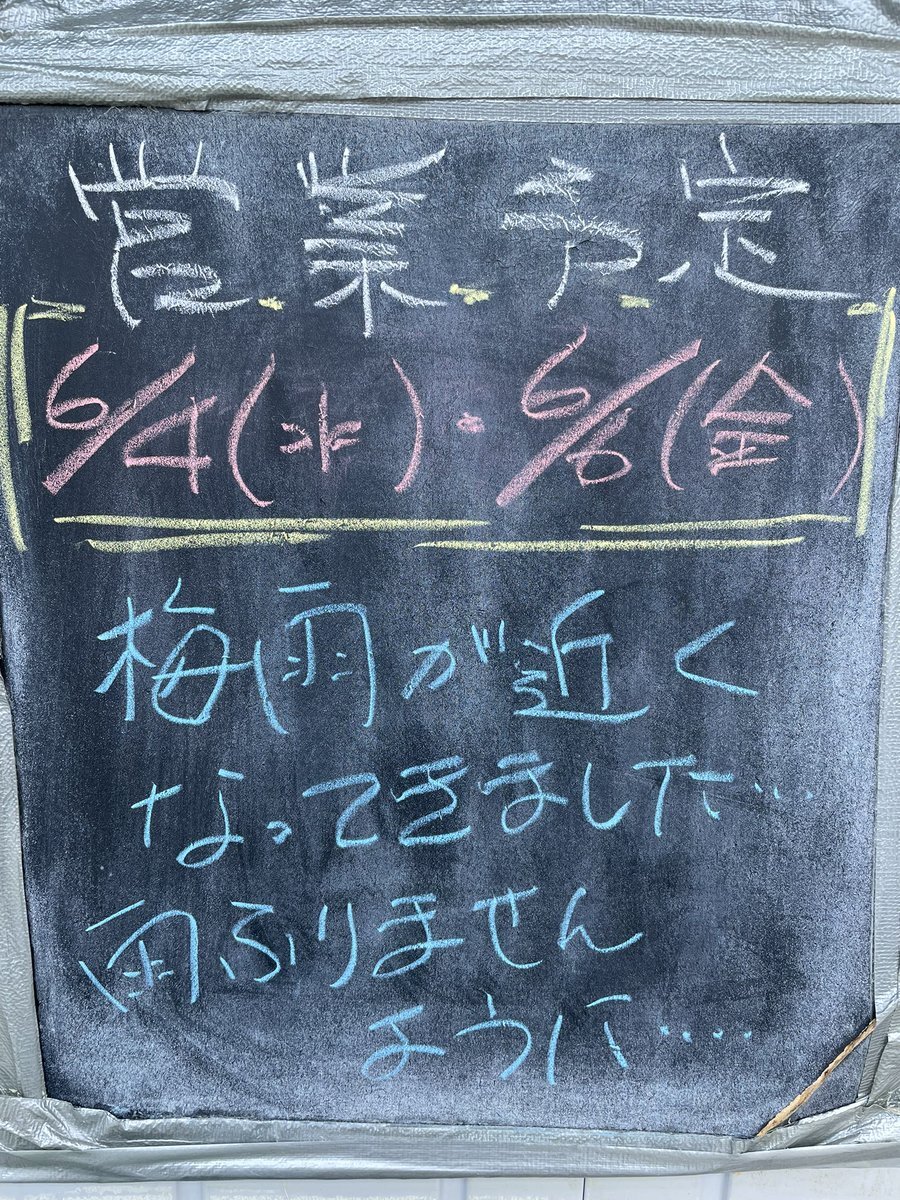 営業予定
6/4(水)・6/6(金)
梅雨が近く
なってきました…
雨ふりません
ように….